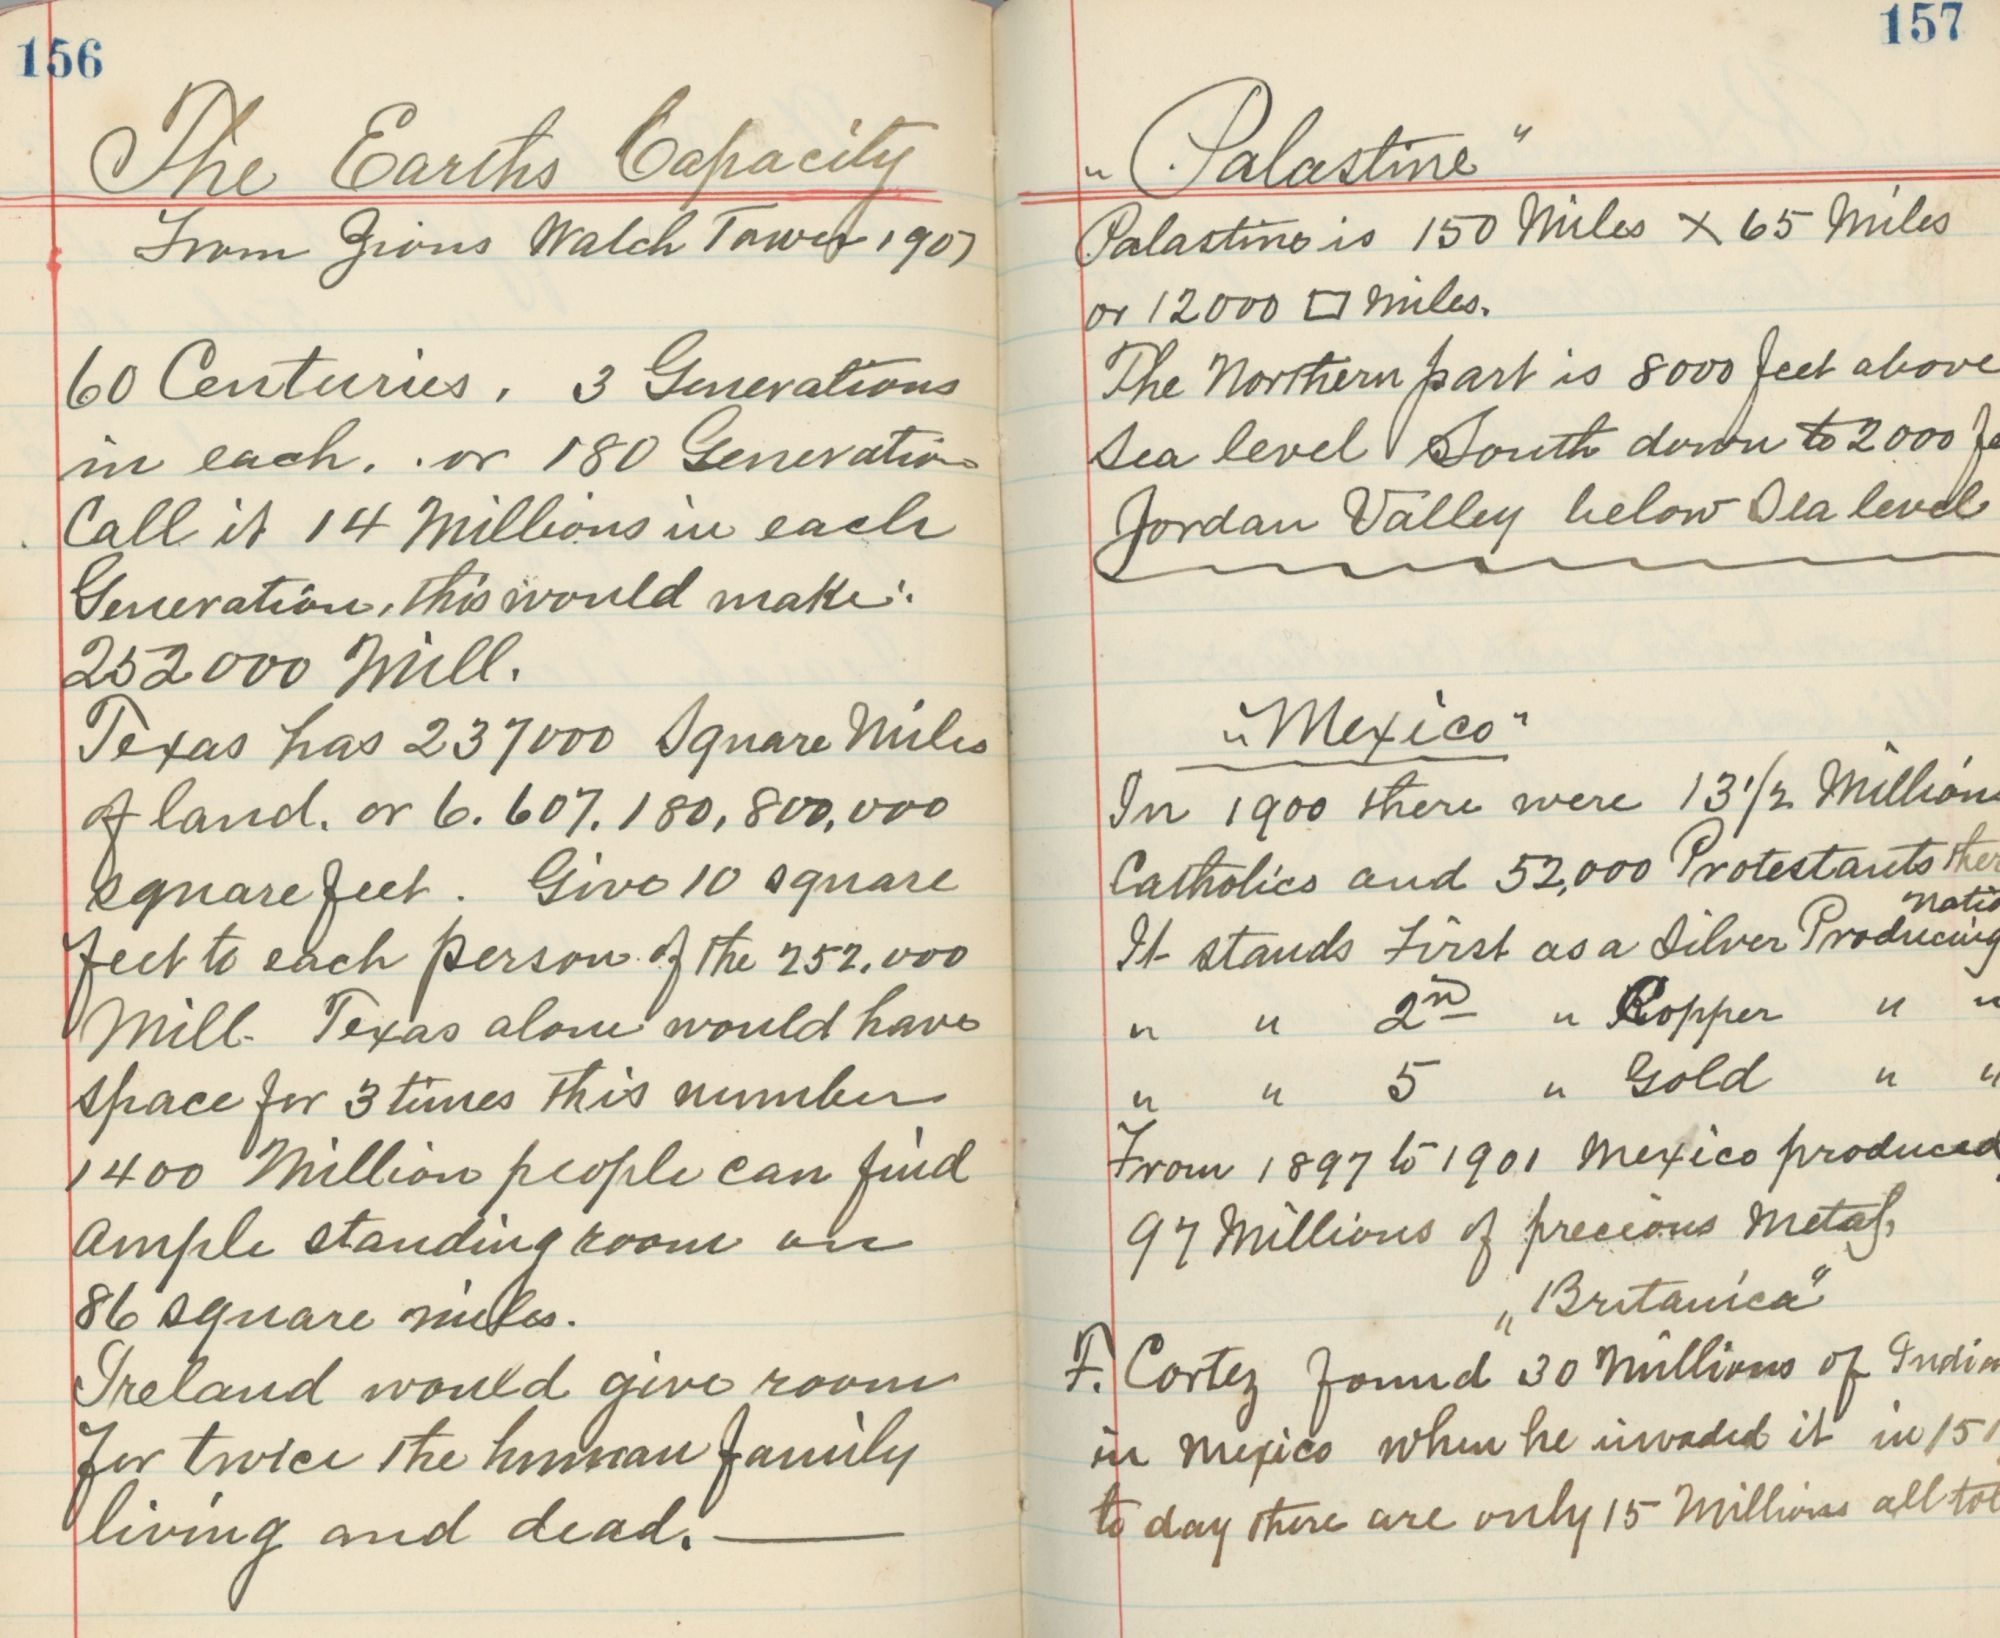 156
The Earths Capacity
From Zions Watch Tower 1907
60 Centuries, 3 Generations
in each, . or 180 Generation
Call it 14 Millions in each
Generation, this would make:
252000 Mill.
Texas has 237000 Square Miles
of land. or 6.607.180,800,000
square feet. Give 10 square
feet to each person of the 252.000
Mill. Texas alone would have
space for 3 times this number
1400 Million people can find
ample standing room on
86 square miles.
Ireland would give room
for twice the human family
living and dead.
157
"Palastine"
Palastine is 150 Miles x 65 Miles
or 12000 □ Miles.
The Northern part is 8000 feet above
Sea level South down to 2000 fe
Jordan Valley below Sea level
"Mexico"
In 1900 there were 13 1/2 Million
Catholics and 52,000 Protestants ther
natio
It stands First as a Silver Producing
" " 2nd " Copper " "
" " 5 " Gold " "
From 1897 to 1901 Mexico produced
97 Millions of precious Metals,
"Britanica"
F. Cortez found 30 Millions of India
in Mexico when he invaded it in 151
to day there are only 15 Millions all tol